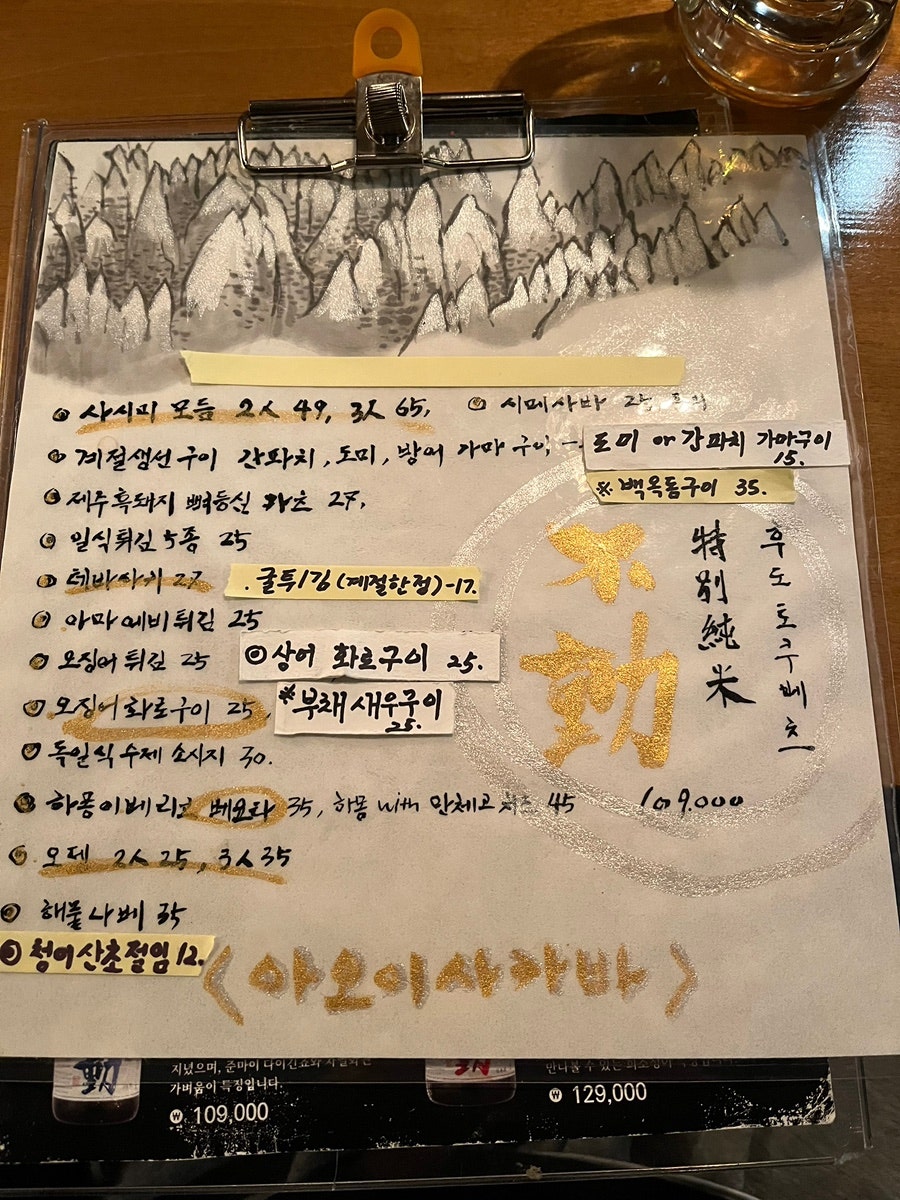 사시미 모듬 2人 49, 3人 65,
시메사바 25
계절생선구이 간파치, 도미, 방어 가마구이
도미 or 간파치 가마구이
15.
※ 백옥돔구이 35.
제주흑돼지 뼈등심 27,
일식튀김 5종 25
테바사키 27
. 굴튀김(계절한정)-17.
아마에비튀김 25
오징어튀김 25
◎ 상어 화로구이 25.
오징어화로구이 25,
※부채새우구이
25.
독일식 수제 소시지 30.
하몽이베리코 베요타 35, 하몽 with 만체고치즈 45
오뎅 2人 25, 3人 35
해물나베 35
◎ 청어산초절임 12.
不動
特別純米
후도 토쿠베츠
109.000
<아오이사카바>
動
지녔으며, 준마이 다이긴죠와 차별화된
가벼움이 특징입니다.
₩ 109,000
動
만나볼 수 있는
₩ 129,000